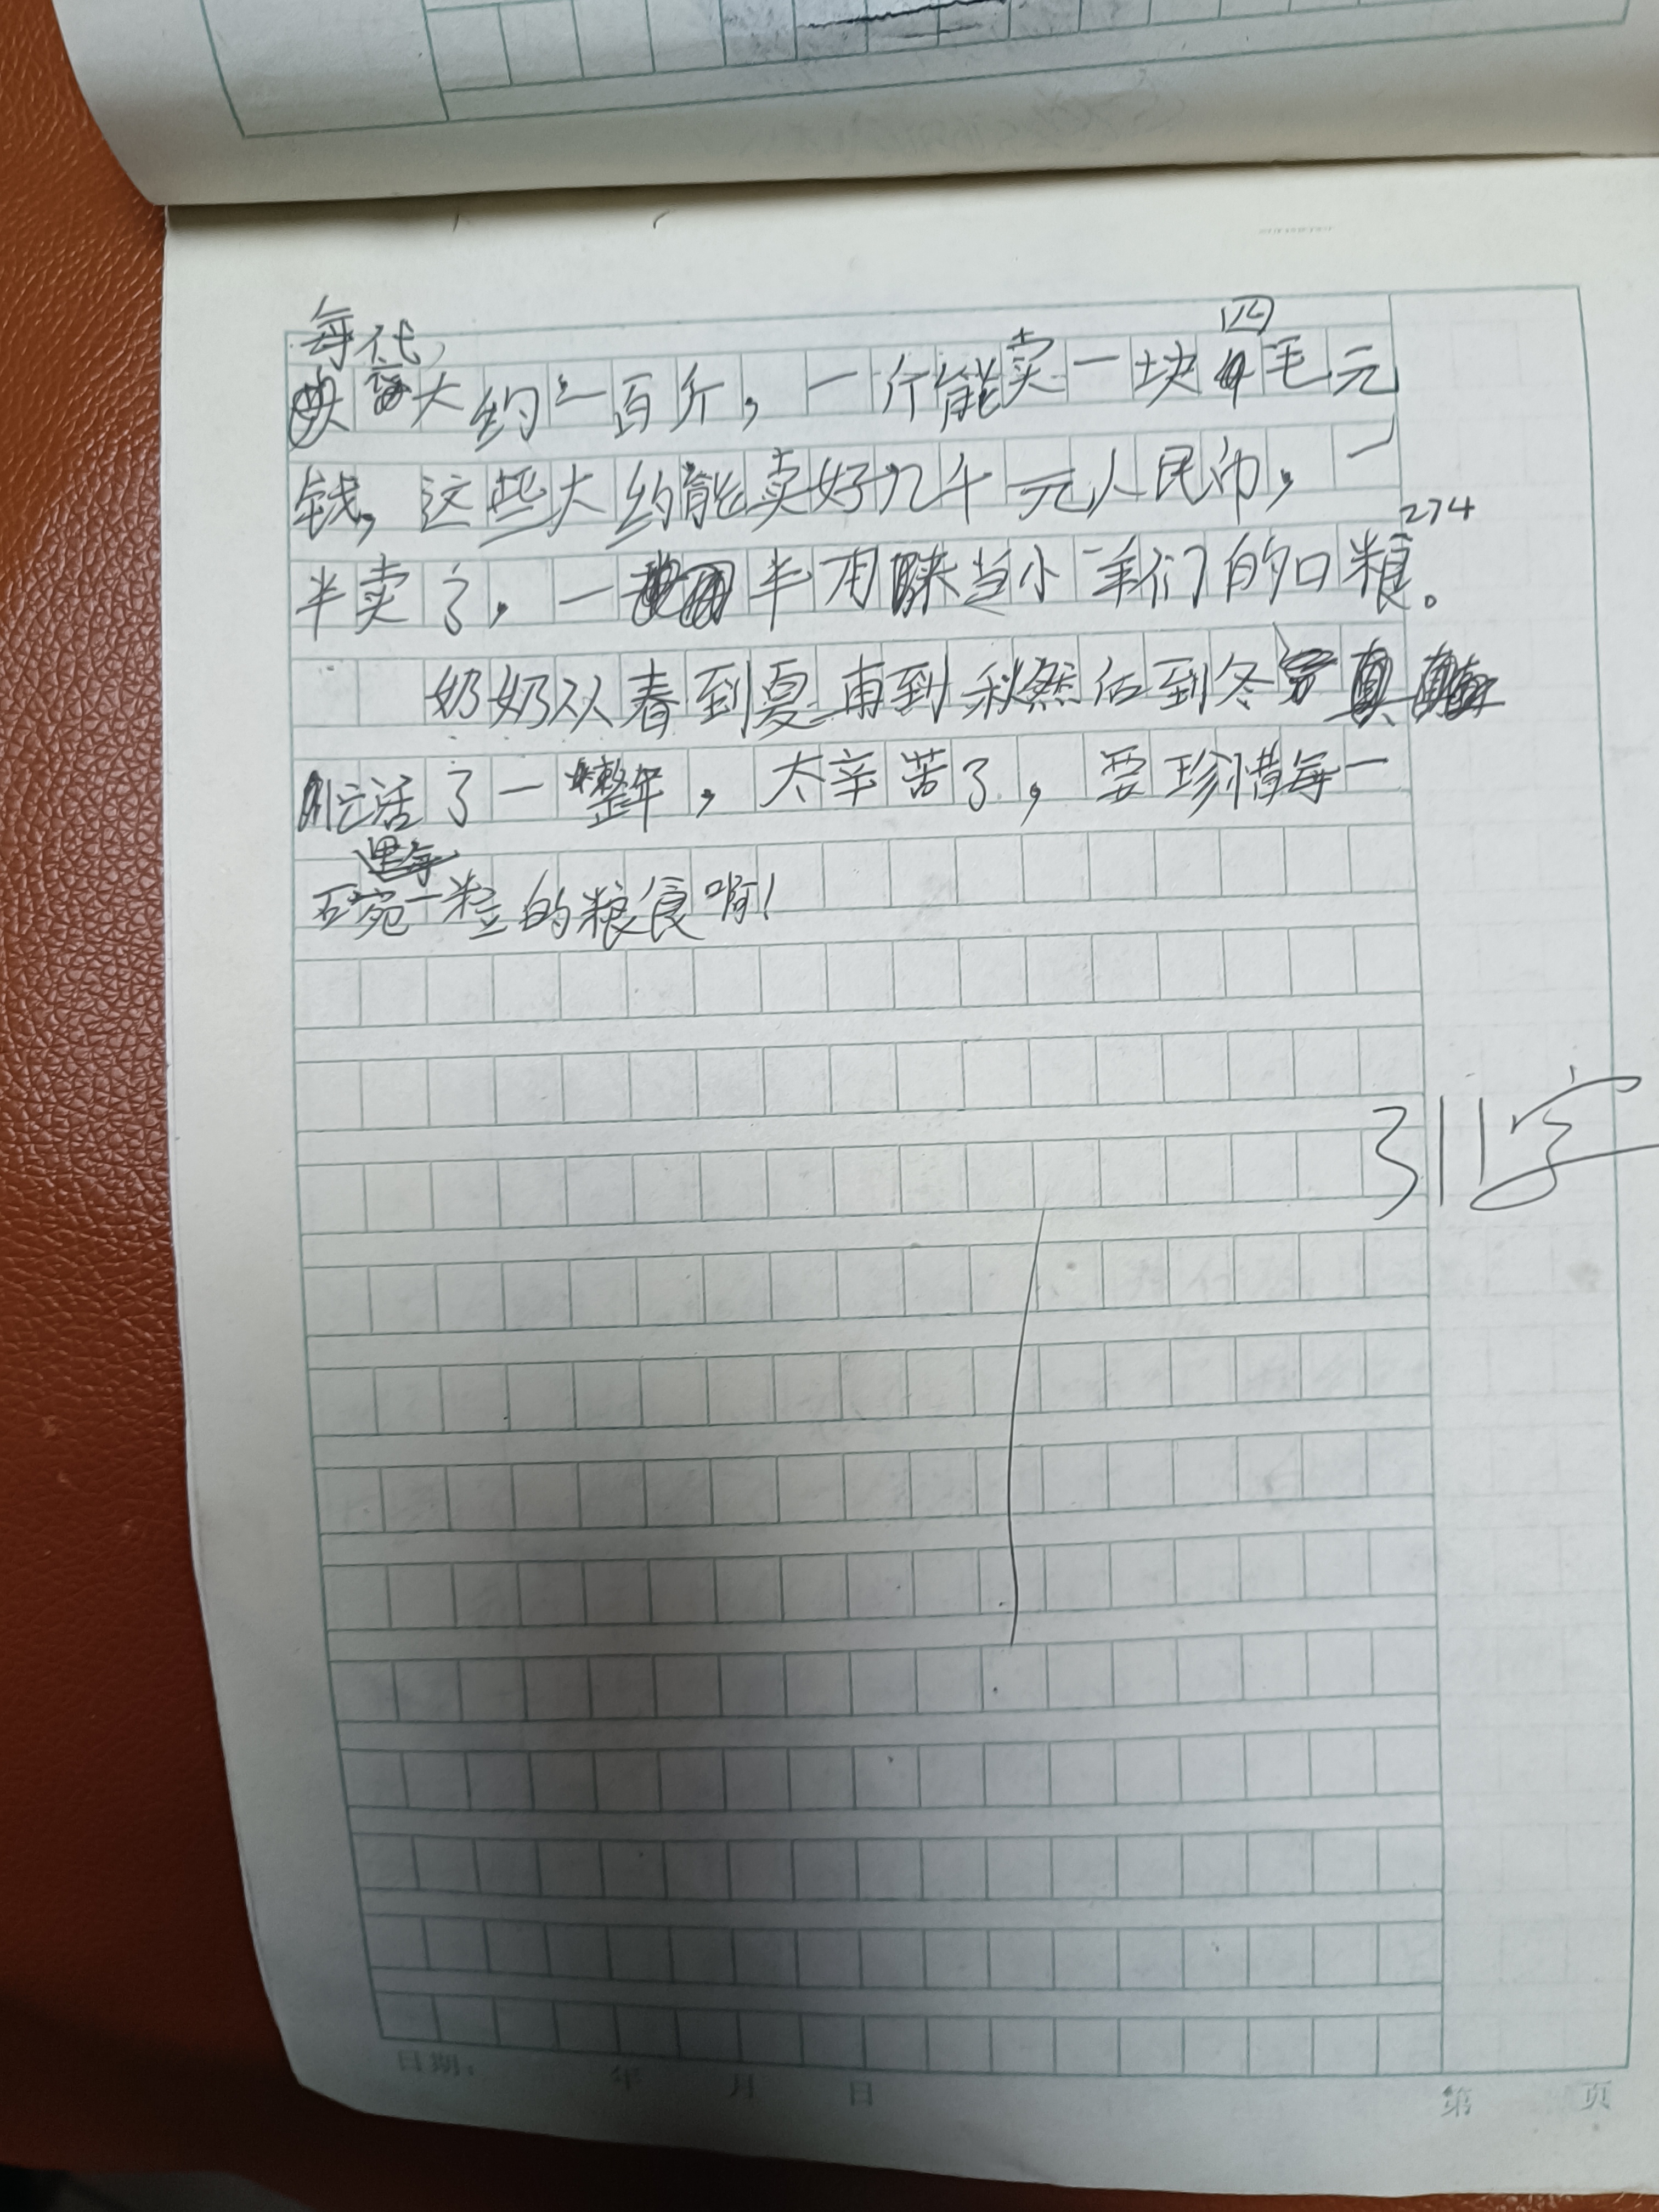 每代
大约二百斤，一斤能卖一块四毛元
钱，这些大约能卖好几千元人民币，一
半卖了，一半用来当小羊们的口粮。
274
奶奶从春到夏再到秋然后到冬
忙活了一整年，太辛苦了，要珍惜每一
碗里每一粒的粮食啊！
311字
日期： 年 月 日
第 页